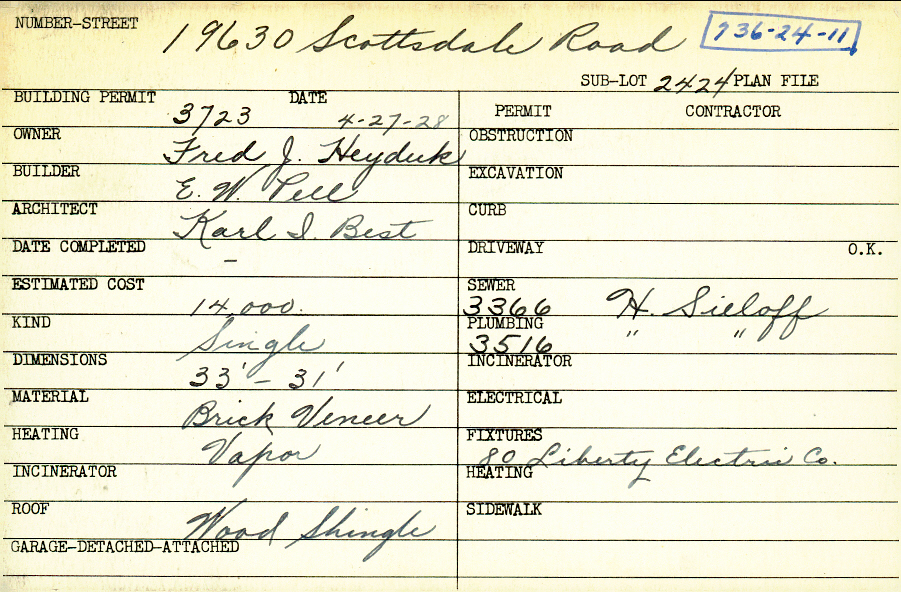 NUMBER-STREET 19630 Scottsdale Road 736-24-11
SUB-LOT 2424 PLAN FILE
BUILDING PERMIT 3723 DATE 4-27-28 PERMIT CONTRACTOR
OWNER Fred J. Heyduk OBSTRUCTION
BUILDER E. W. Pell EXCAVATION
ARCHITECT Karl I. Best CURB
DATE COMPLETED - DRIVEWAY O.K.
ESTIMATED COST 14,000. SEWER 3366 H. Sieloff
KIND Single PLUMBING 3516 " "
DIMENSIONS 33' - 31' INCINERATOR
MATERIAL Brick Veneer ELECTRICAL
HEATING Vapor FIXTURES 80 Liberty Electric Co.
INCINERATOR HEATING
ROOF Wood Shingle SIDEWALK
GARAGE-DETACHED-ATTACHED